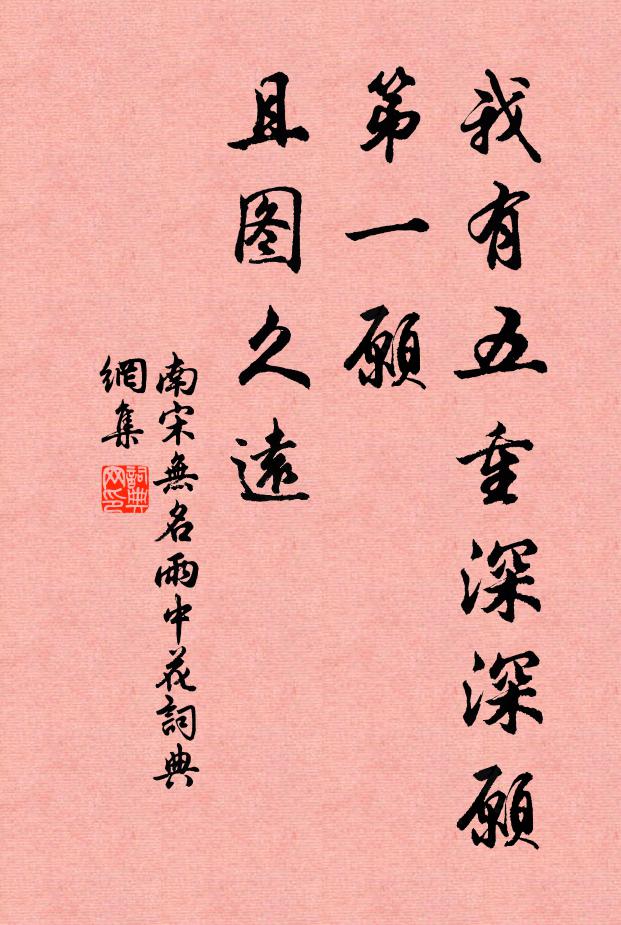 我有五重深深願
第一願
且图久遠
南宋無名雨中花詞典
網集
詞典
网印